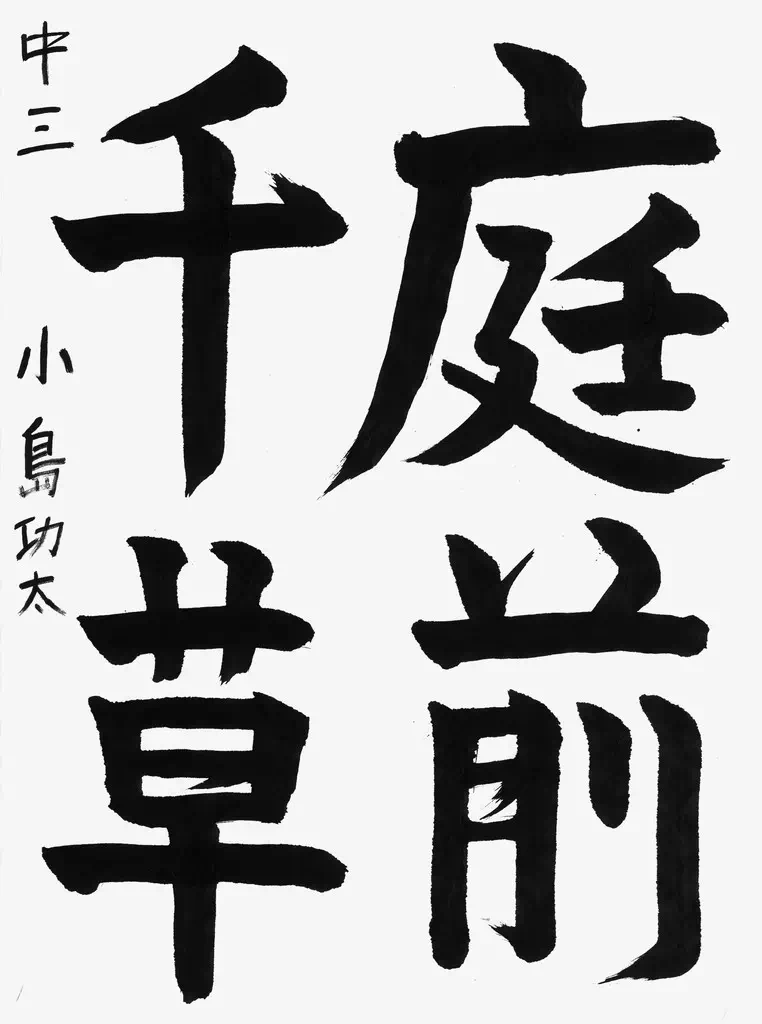 庭前
千草
中三 小島功太